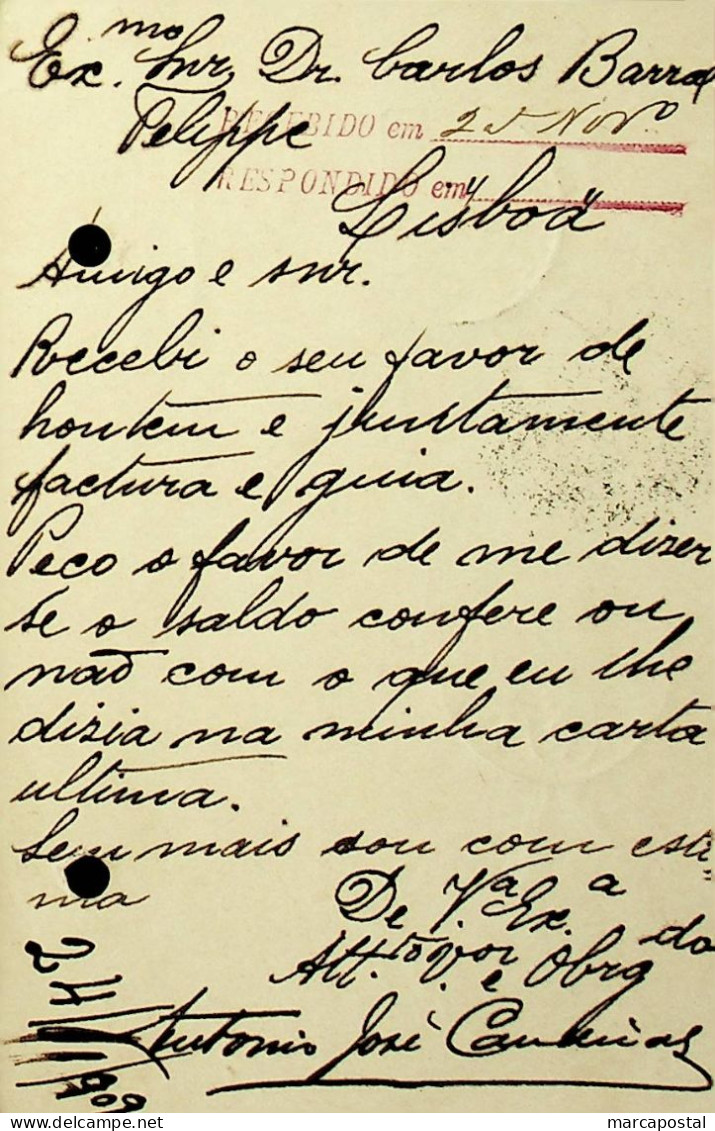 Ex.mo Snr. Dr. Carlos Barral
Felippe
RECEBIDO em 25 Novo
RESPONDIDO em " "
Lisboa
Amigo e snr.
Recebi o seu favor de
hontem e justamente
factura e guia.
Peco o favor de me dizer
se o saldo confere ou
não com o que eu lhe
dizia na minha carta
ultima.
Sem mais sou com esti
ma
De V.a Ex.a
Att.to Vor e Obrgdo
Antonio José
24/11/909
marcapostal